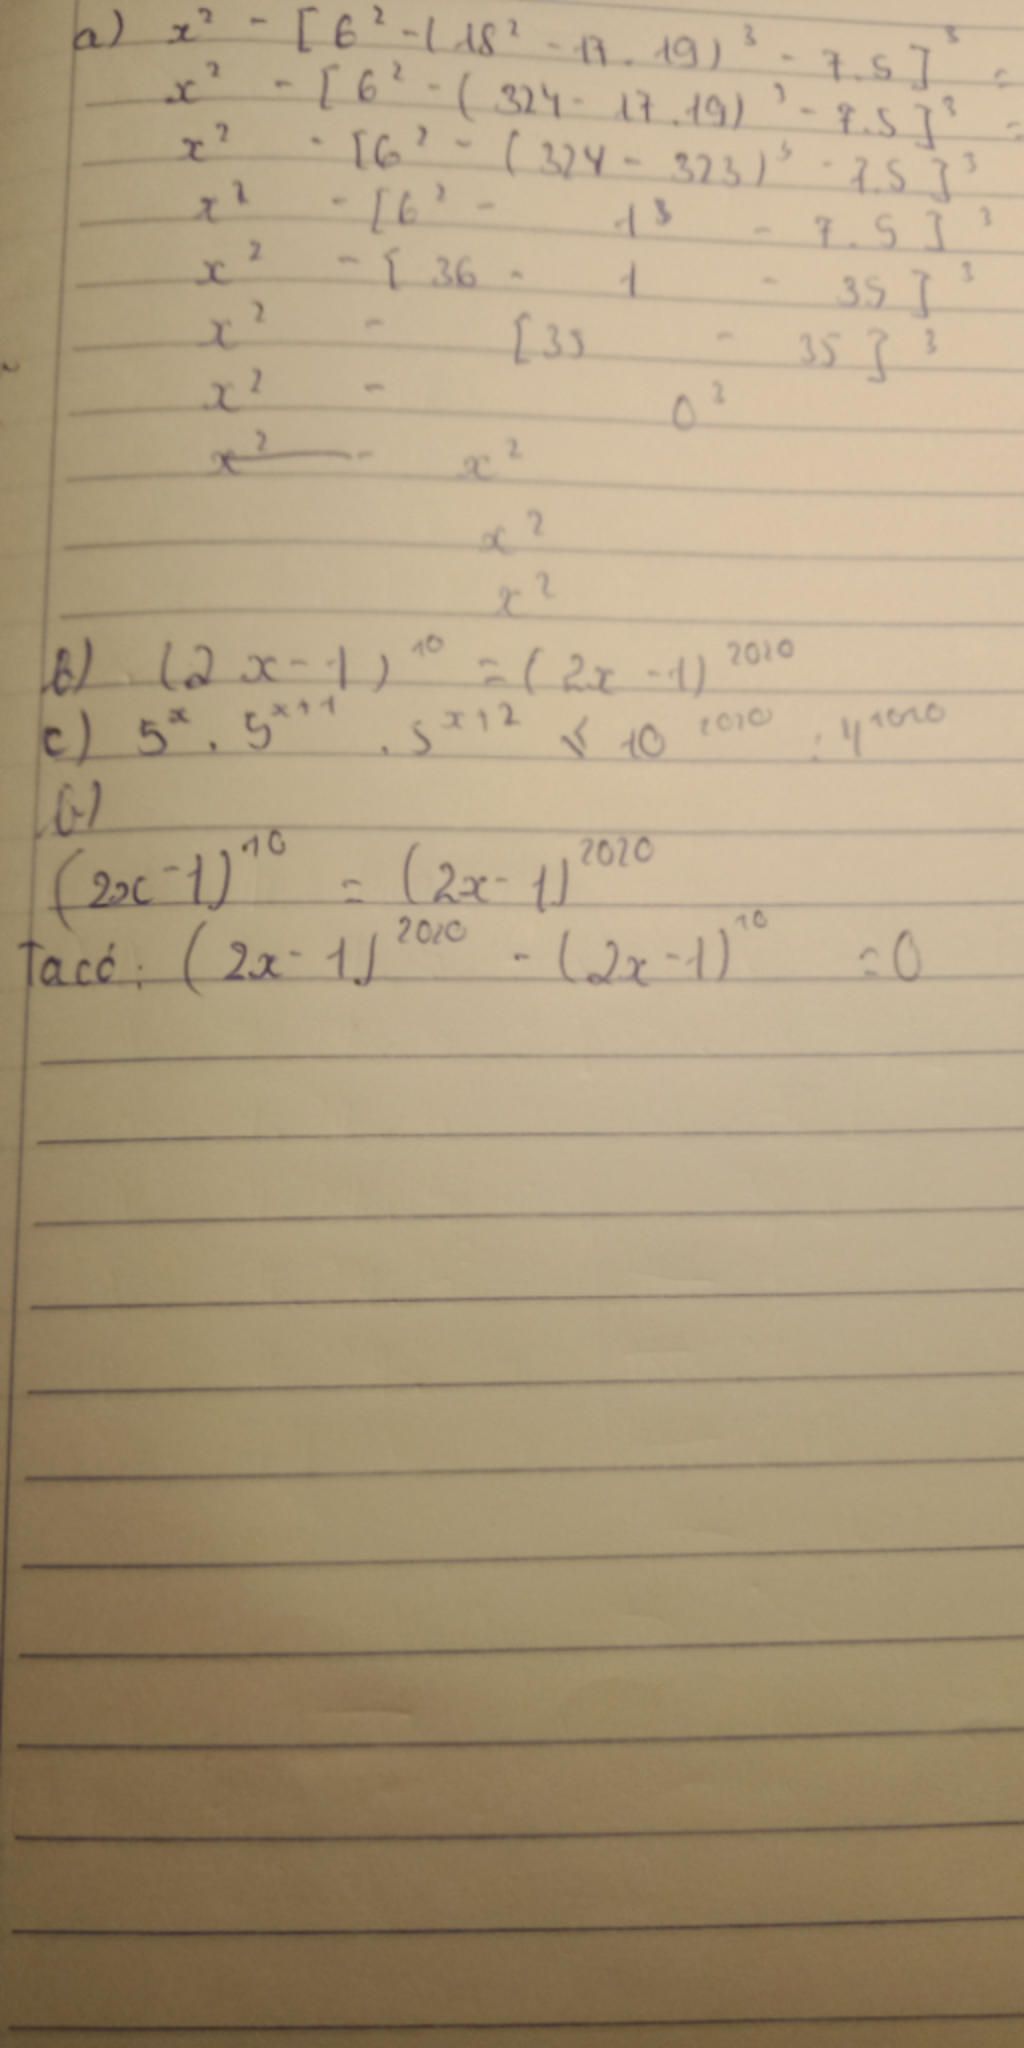 a) x² - [6² - (18² - 17.19)³ - 7.5]³ =
x² - [6² - (324 - 17.19)³ - 7.5]³ =
x² - [6² - (324 - 323)³ - 7.5]³
x² - [6² - 1³ - 7.5]³
x² - [36 - 1 - 35]³
x² - [35 - 35]³
x² - 0³
x² - x²
x²
x²
b) (2x-1)¹⁰ = (2x-1)²⁰²⁰
c) 5ˣ . 5ˣ⁺¹ . 5ˣ⁺² ≤ 10²⁰²⁰ : 4¹⁰²⁰
b)
(2x-1)¹⁰ = (2x-1)²⁰²⁰
Ta có: (2x-1)²⁰²⁰ - (2x-1)¹⁰ = 0